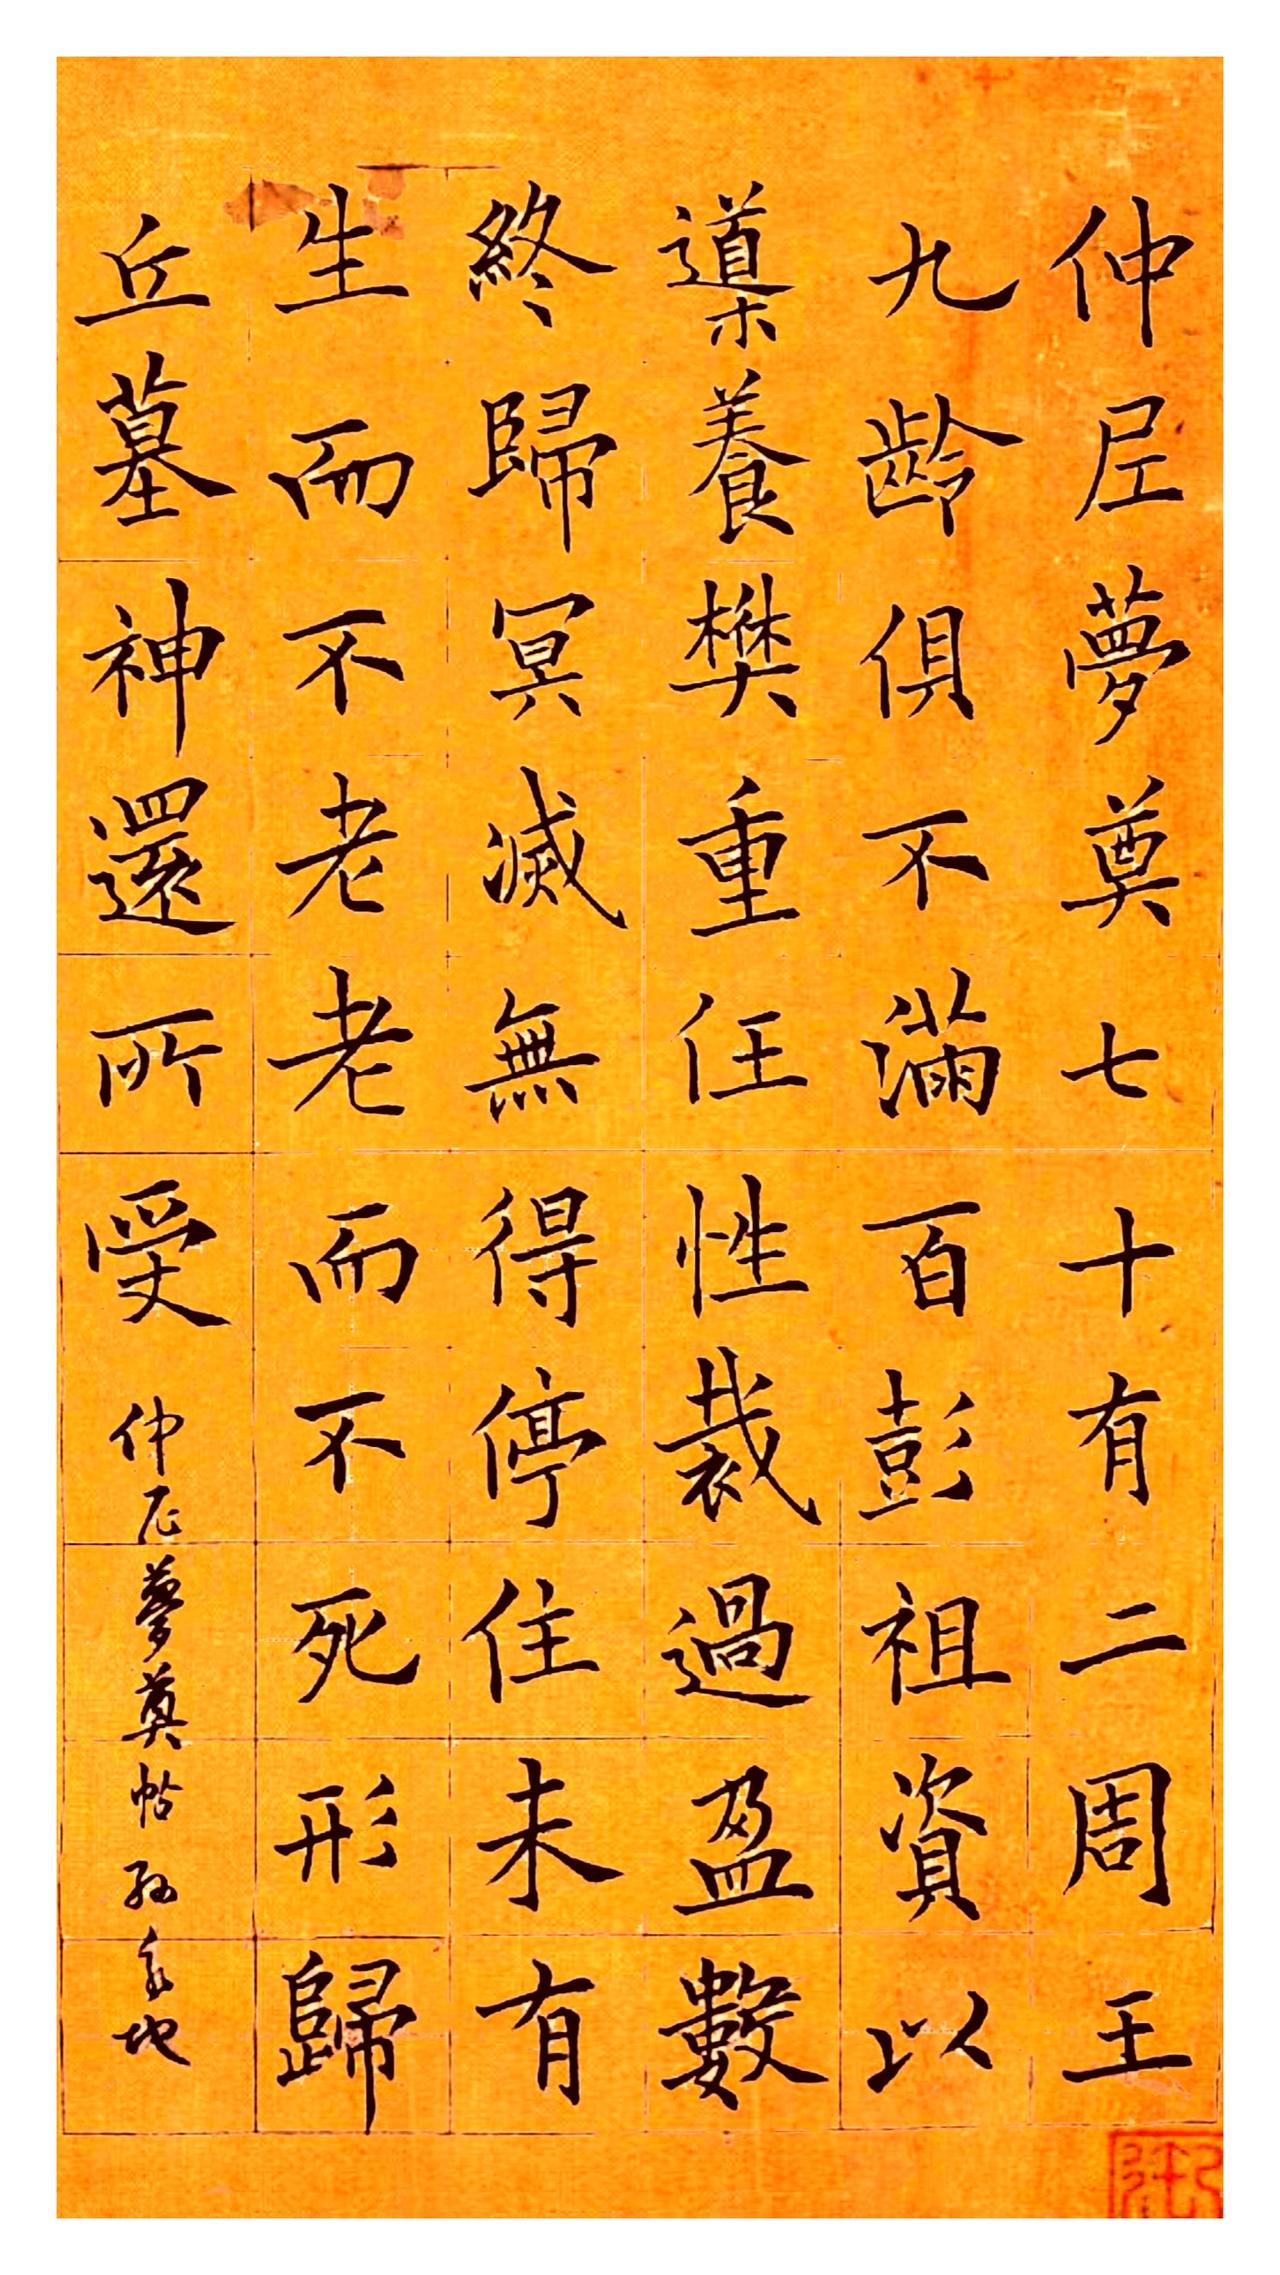 仲尼夢奠七十有二周王
九龄俱不滿百彭祖資以
導養樊重任性裁過盈數
終歸冥滅無得停住未有
生而不老老而不死形歸
丘墓神還所受
仲尼夢奠帖 孙